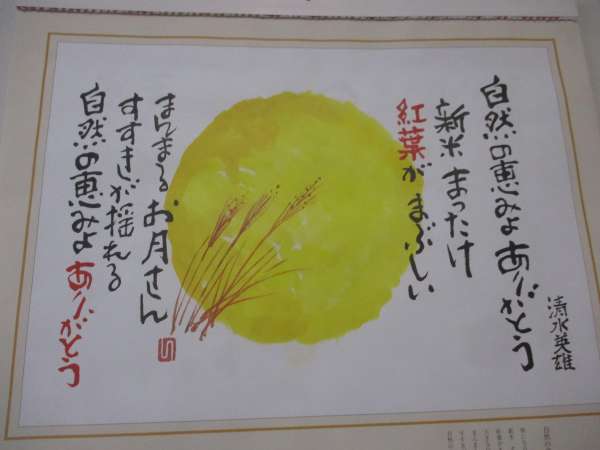 自然の恵みよ ありがとう
新米 まったけ
紅葉が まぶしい
まんまる お月さん
すすきが 揺れる
自然の恵みよ ありがとう
清水英雄